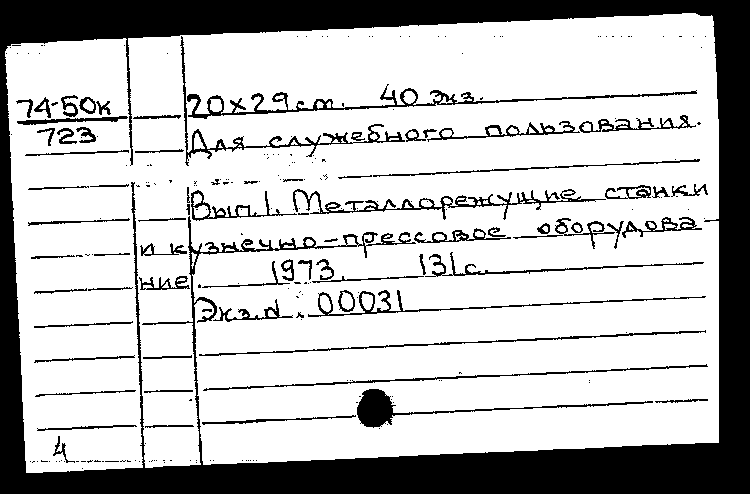 74-50к
723
20×29 см. 40 экз.
Для служебного пользования.
Вып. 1. Металлорежущие станки
и кузнечно-прессовое оборудова-
ние. 1973. 131 с.
Экз. № : 00031
4